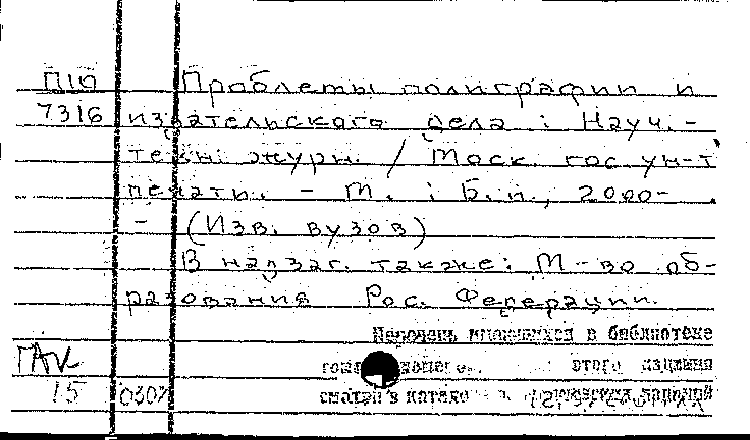 П19 Проблемы полиграфии и
7316 издательского дела : Науч.-
техн. журн. / Моск. гос. ун-т
печати. - М. : Б. и., 2000- .
- (Изв. вузов)
В надзаг. также: М-во об-
разования Рос. Федерации.
Перечень имеющихся в библиотеке
этого издания
смотри в
15 0307